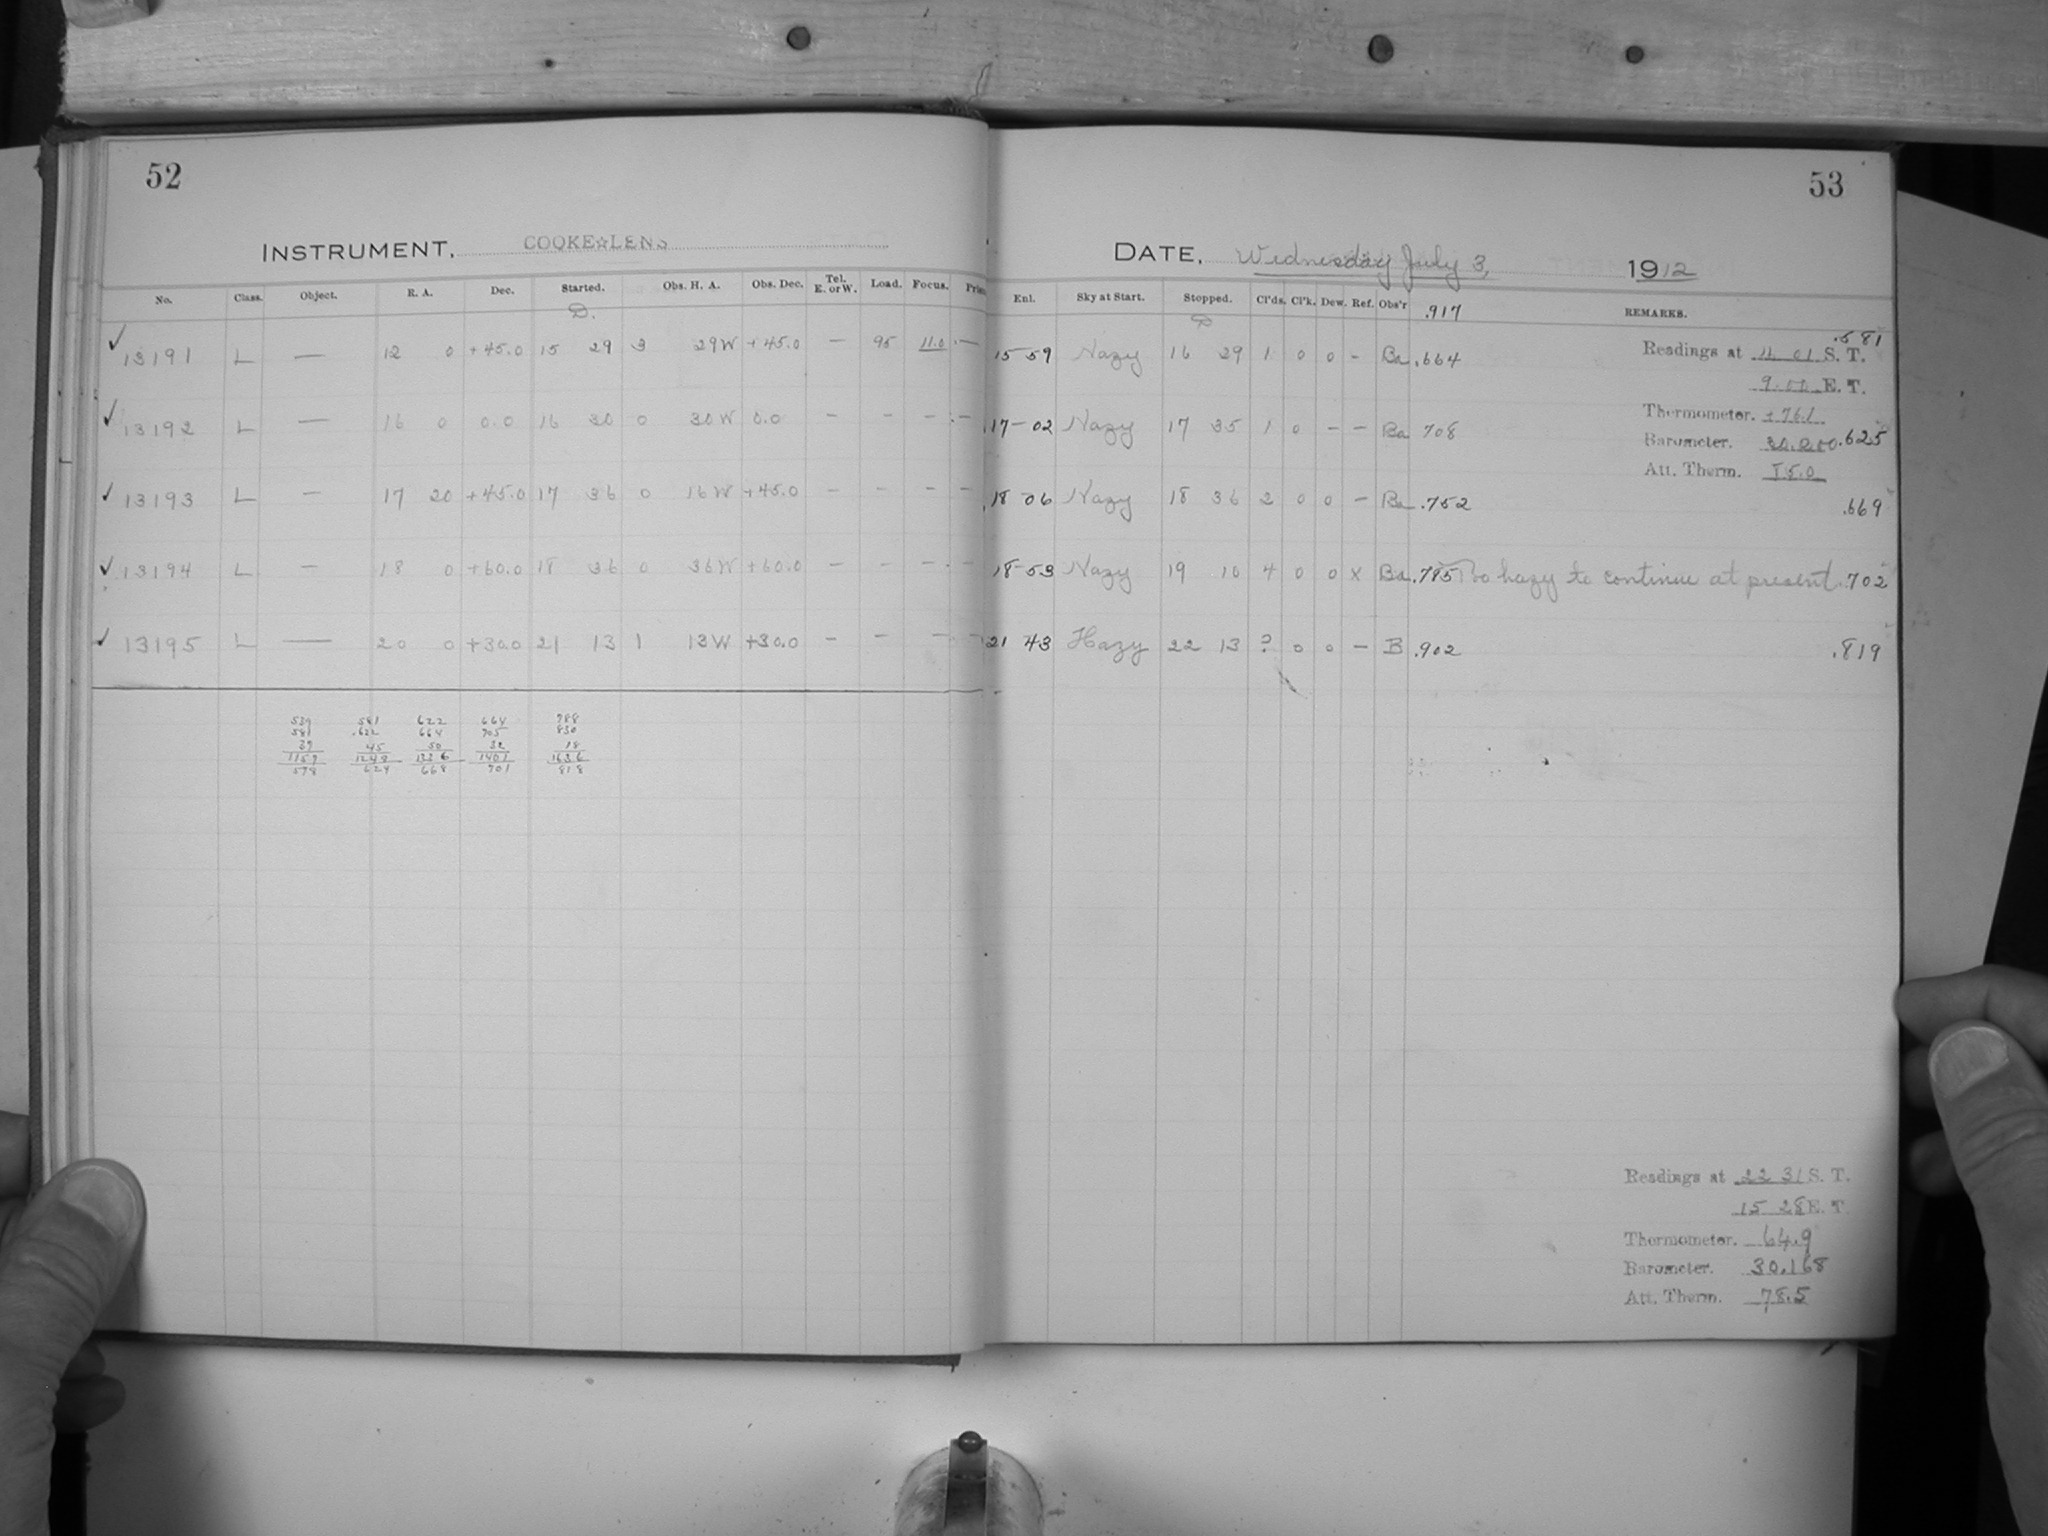 52
INSTRUMENT, COOKE☆LENS
No. Class. Object. R. A. Dec. Started. Obs. H. A. Obs. Dec. Tel. E. or W. Load. Focus.
D.
✓ 13191 L — 12 0 +45.0 15 29 3 29W +45.0 — 95 11.0 —
✓ 13192 L — 16 0 0.0 16 30 0 30W 0.0 — — — —
✓ 13193 L — 17 20 +45.0 17 36 0 16W +45.0 — — — —
✓ 13194 L — 18 0 +60.0 18 36 0 36W +60.0 — — — —
✓ 13195 L — 20 0 +30.0 21 13 1 13W +30.0 — — — —
539 581 622 664 788
581 .622 664 705 830
39 45 50 32 18
1159 1248 1336 1401 1636
578 624 668 701 818
53
DATE, Wednesday July 3, 1912
Enl. Sky at Start. Stopped. Cl'ds. Cl'k. Dew. Ref. Obs'r .917 REMARKS.
D
15 59 Hazy 16 29 1 0 0 - Ba .664
17-02 Hazy 17 35 1 0 - - Ba 708
18 06 Hazy 18 36 2 0 0 - Ba .752
18-53 Hazy 19 10 4 0 0 x Ba .785 Too hazy to continue at present .702
21 43 Hazy 22 13 ? 0 0 - B .902 .819
.581
Readings at S. T.
E. T.
Thermometer. +76.1
Barometer. .625
Att. Therm.
.669
Readings at 22 31 S. T.
15 28 E. T.
Thermometer. 64.9
Barometer. 30.168
Att. Therm. 78.5